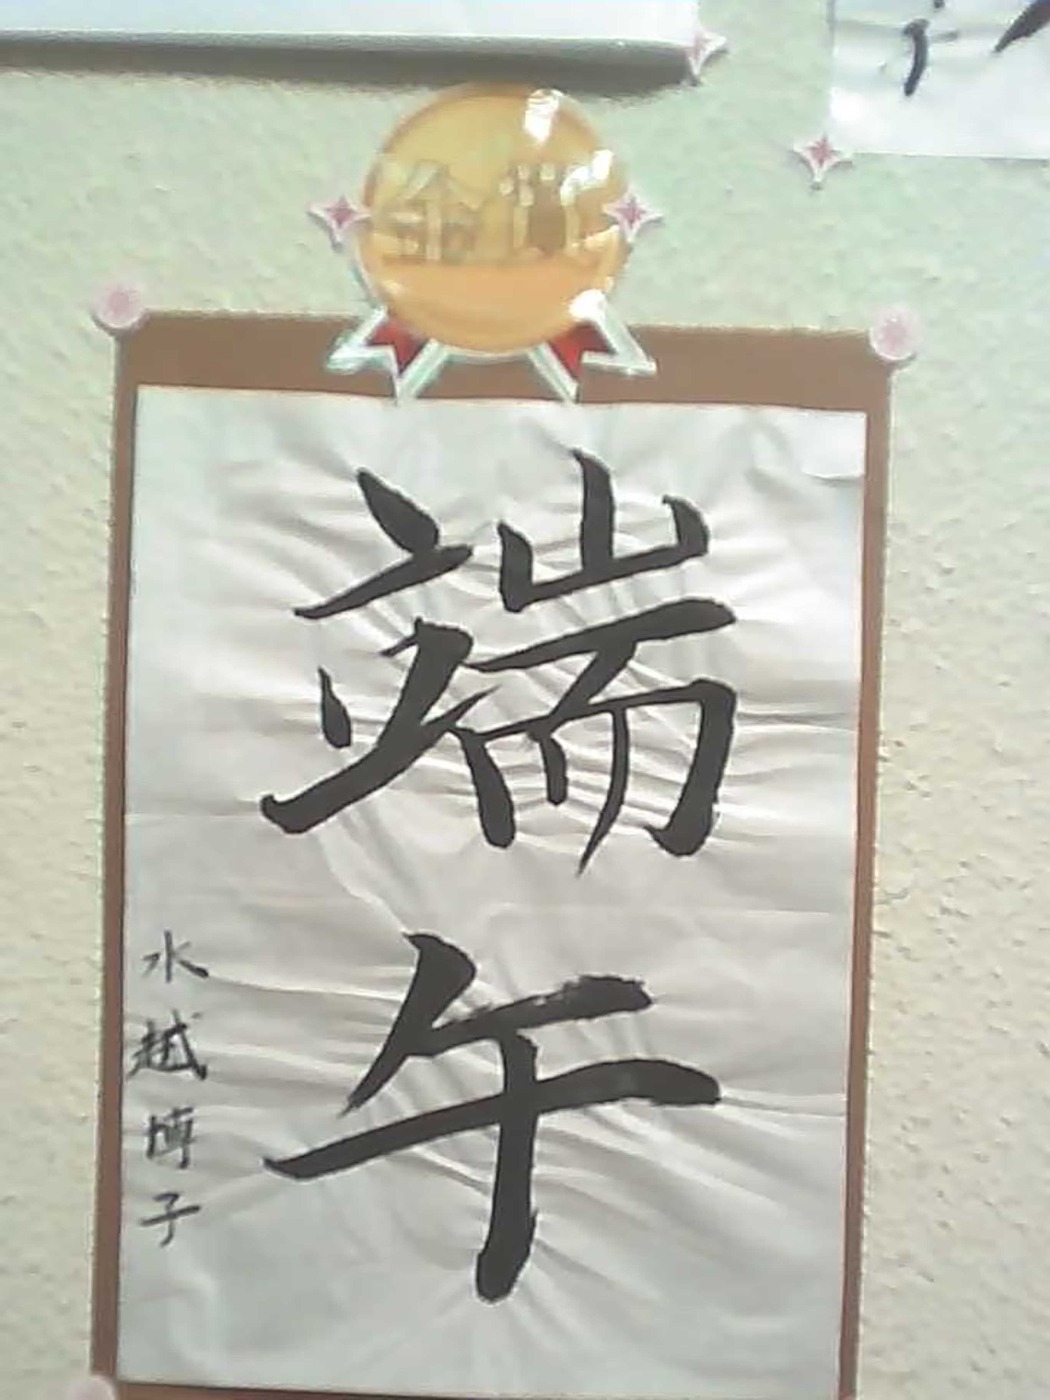 金賞
端午
水越博子